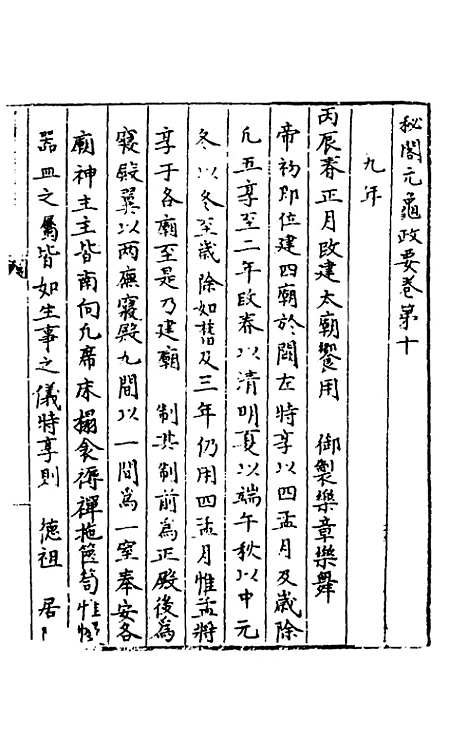 秘閣元龜政要卷第十
九年
丙辰春正月改建太廟饗用 御製樂章樂舞
帝初即位建四廟於闕左特享以四孟月及歲除
凡五享至二年改春以清明夏以端午秋以中元
冬以冬至歲除如舊及三年仍用四孟月惟孟將
享于各廟至是乃建廟 制其制前為正殿後為
寢殿翼以兩廡寢殿九間以一間為一室奉安各
廟神主主皆南向凡帝床榻衾褥褌拖篋笥帷
器皿之屬皆如生事之儀特享則 德祖 居